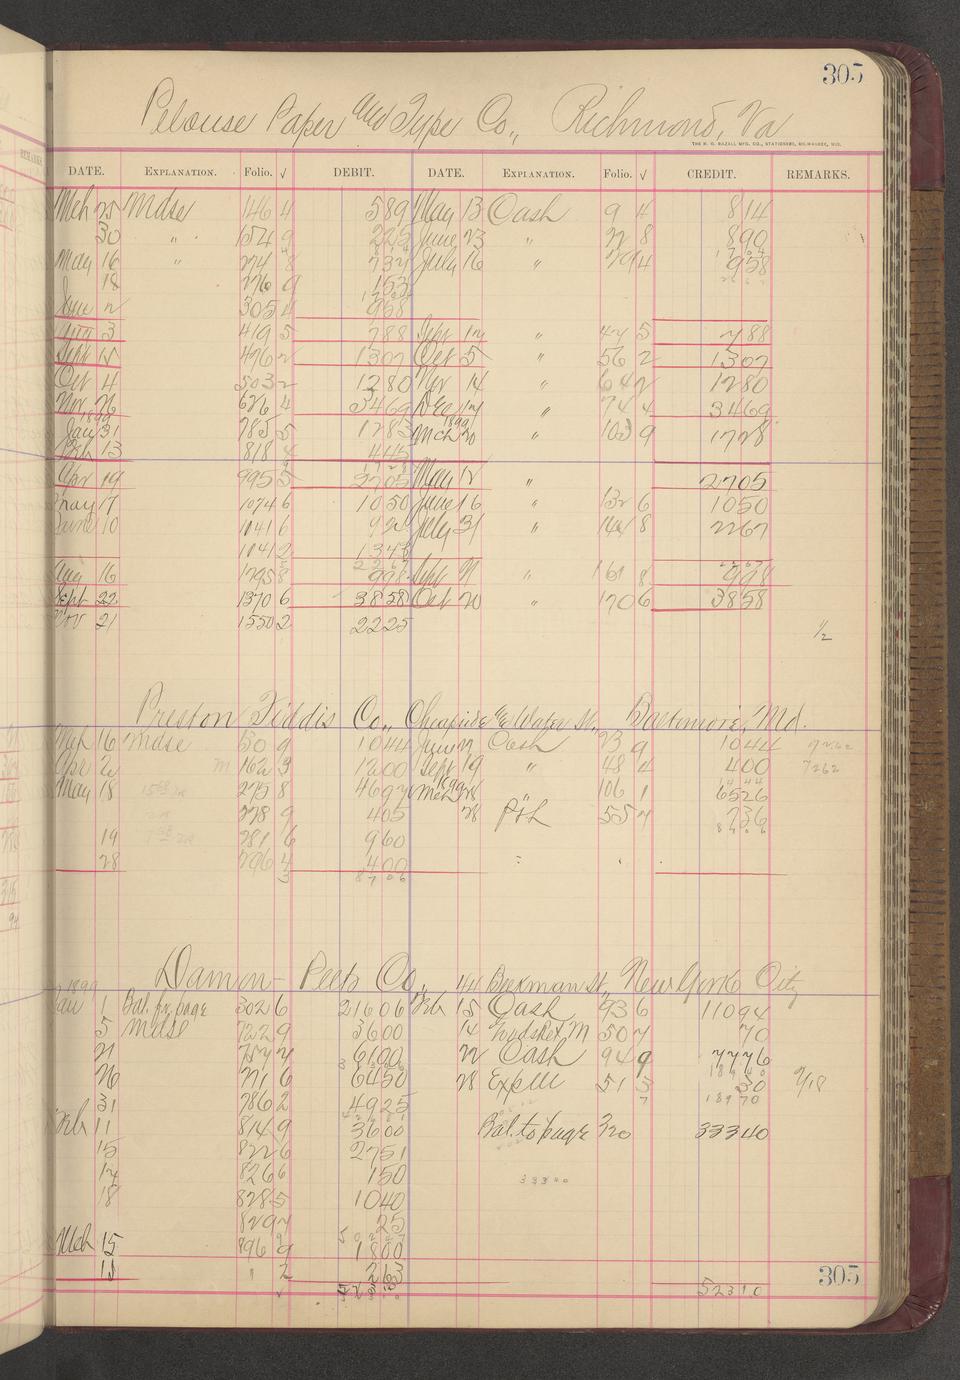 305
Pelouse Paper and Type Co., Richmond, Va
THE H. G. RAZALL MFG. CO., STATIONERS, MILWAUKEE, WIS.
DATE. EXPLANATION. Folio. √ DEBIT. DATE. EXPLANATION. Folio. √ CREDIT. REMARKS.
Mch 25 Mdse 146 4 589 May 13 Cash 9 4 814
30 " 154 9 225 June 23 " 22 8 890
May 16 " 274 8 737 July 16 " 29 4 958
18 276 9 153
June 2 305 4 958
3 419 5 288 Sept 12 " 42 5 288
Sept 15 476 2 1307 Oct 5 " 56 2 1307
Oct 4 503 2 1280 Nov 14 " 64 2 1280
Nov 26 626 4 3469 Dec 12 " 74 4 3469
1899
Jany 31 785 5 1283 Mch 20 " 103 9 1728
Feb 13 818 4 445
Apr 19 995 5 2705 May 12 " 2705
May 17 1074 6 1050 June 16 " 132 6 1050
June 10 1141 6 920 July 31 " 144 8 2267
1141 2 1343
Aug 16 1295 8 998 Sept 21 " 161 8 998
Sept 22 1370 6 3858 Oct 20 " 170 6 3858
Nov 21 1550 2 2225
1/2
Preston Fiddis Co., Cheapside & Water St., Baltimore, Md.
Mch 16 Mdse 50 9 1044 June 2 Cash 23 9 1044
Apr 2 162 3 1200 Sept 19 " 48 4 400 7262
May 18 275 8 4697 Mch 28 " 106 1 6526
278 9 405 28 P&L 557 736
19 281 6 960
28 296 4 400
8706
Damon- Peets Co., 44 Beekman St, New York City
1899
Jan 1 Bal. fr. page 302 6 21606 Feb 15 Cash 93 6 11094
5 Mdse 722 9 3600 14 50 7 70
21 757 7 6100 22 Cash 94 9 7776
26 771 6 6450 28 Exp 51 3 30
31 786 2 4925 18970
Feb 11 814 9 3600 Bal. to page 320 33340
15 822 6 2751
17 826 6 150 33340
18 828 5 1040
829 7 25
Mch 15 896 9 1800
15 " 2 263
52310 52310
305